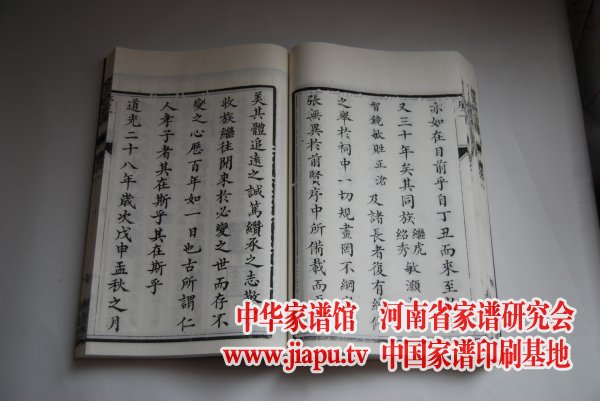 亦如在目前乎自丁丑而來至
又三十年矣其同族繼虎紹秀敏瀕
智鏡敏賍正滄及諸長者復有
之舉於祠中一切規畫罔不綱
張無異於前賢序中所備載而
美其體追遠之誠篤纘承之志敬
收族繼往開來於必變之世而存不
變之心歷百年如一日也古所謂仁
人孝子者其在斯乎其在斯乎
道光二十八年歲次戊申孟秋之月
序
中华家谱馆 河南省家谱研究会
www.jiapu.tv 中国家谱印刷基地